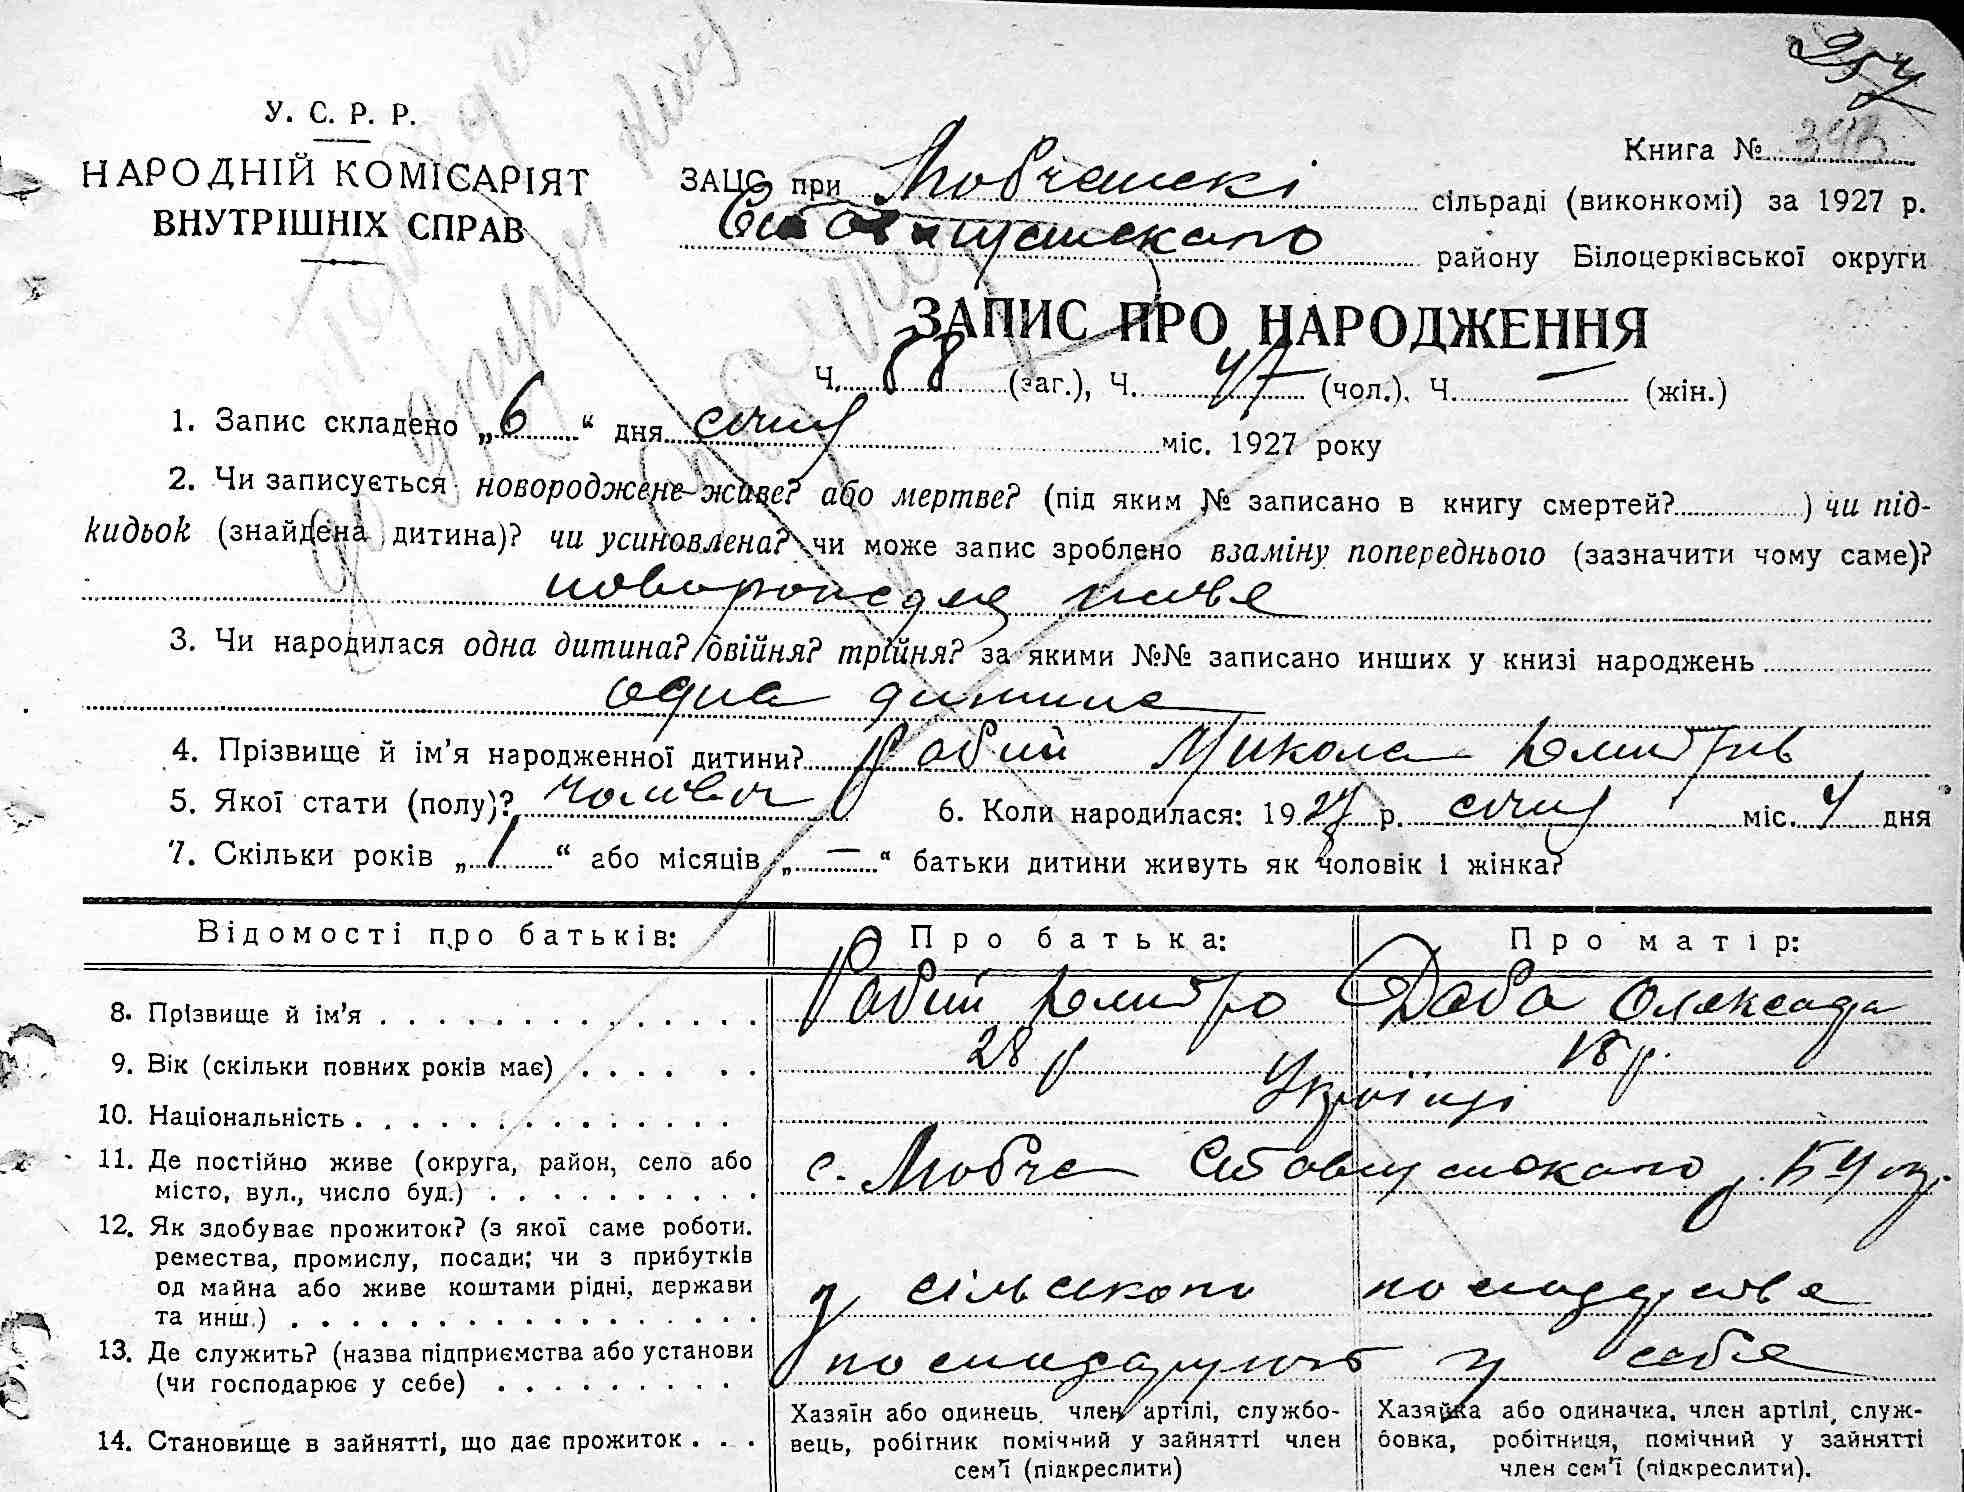 254
У. С. Р. Р.
НАРОДНІЙ КОМІСАРІЯТ
ВНУТРІШНІХ СПРАВ
Книга №
ЗАЦС при сільраді (виконкомі) за 1927 р.
району Білоцерківської округи
ЗАПИС ПРО НАРОДЖЕННЯ
Ч. 88 (заг.), Ч. 47 (чол.), Ч. — (жін.)
1. Запис складено „6“ дня січня міс. 1927 року
2. Чи записується новороджене живе? або мертве? (під яким № записано в книгу смертей? ) чи під-
кидьок (знайдена дитина)? чи усиновлена? чи може запис зроблено взаміну попереднього (зазначити чому саме)?
живе
3. Чи народилася одна дитина? двійня? трійня? за якими №№ записано инших у книзі народжень
одна дитина
4. Прізвище й ім'я народженної дитини? Рабий Микола Дмитрів
5. Якої стати (полу)? чоловіч 6. Коли народилася: 1927 р. січня міс. 4 дня
7. Скільки років „1“ або місяців „—“ батьки дитини живуть як чоловік і жінка?
Відомості про батьків: Про батька: Про матір:
8. Прізвище й ім'я Рабий Дмитро Олександа
9. Вік (скільки повних років має) 28 р 18 р.
10. Національність Українці
11. Де постійно живе (округа, район, село або с.
місто, вул., число буд.)
12. Як здобуває прожиток? (з якої саме роботи.
ремества, промислу, посади; чи з прибутків
од майна або живе коштами рідні, держави
та инш.) з сільського господарства
13. Де служить? (назва підприємства або установи
(чи господарює у себе) господарують у себе
14. Становище в зайнятті, що дає прожиток
Хазяїн або одинець, член артілі, службо-
вець, робігник помічний у зайнятті член
сем'ї (підкреслити)
Хазяйка або одиначка, член артілі, служ-
бовка, робітниця, помічний у зайнятті
член сем'ї (підкреслити).